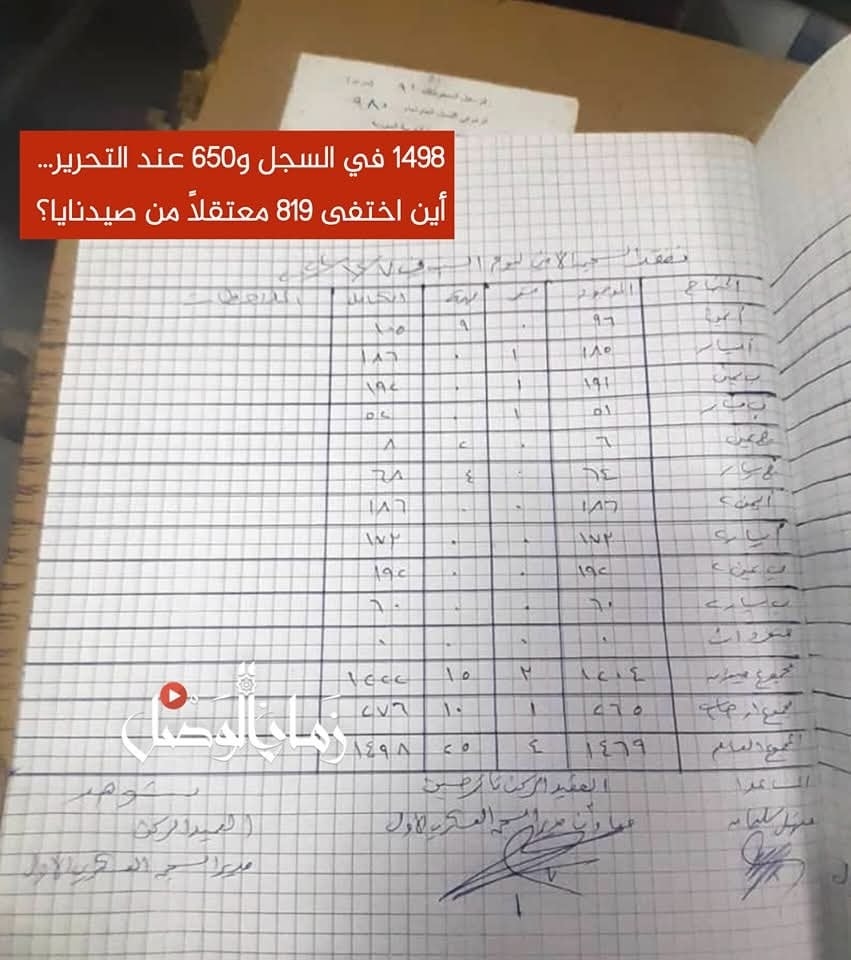 ٩٨٠
1498 في السجل و650 عند التحرير...
أين اختفى 819 معتقلاً من صيدنايا؟
تفقد السجن الأول ليوم السبت في
الجناح الموجود الكامل الملاحظات
٩٦ ٠ ٩ ١٠٥
أ يسار ١٨٥ ١ ٠ ١٨٦
ب يمين ١٩١ ١ ٠ ١٩٢
ب يسار ٥١ ١ ٠ ٥٢
ج يمين ٦ ٠ ٢ ٨
ج يسار ٦٤ ٠ ٤ ٦٨
أ يمين ٢ ١٨٦ ٠ ٠ ١٨٦
أ يسار ٢ ١٧٣ ٠ ٠ ١٧٣
ب يمين ٢ ١٩٢ ٠ ٠ ١٩٢
ب يسار ٢ ٦٠ ٠ ٠ ٦٠
منفردات ٠ ٠ ٠ ٠
مجموع ١٢٠٤ ٣ ١٥ ١٢٢٢
مجموع ٢٦٥ ١ ١٠ ٢٧٦
المجموع العام ١٤٦٩ ٤ ٢٥ ١٤٩٨
زمان الوصل
المساعد العقيد الركن شوهد
سليمان معاون مدير السجن العسكري الأول العميد الركن
مدير السجن العسكري الأول